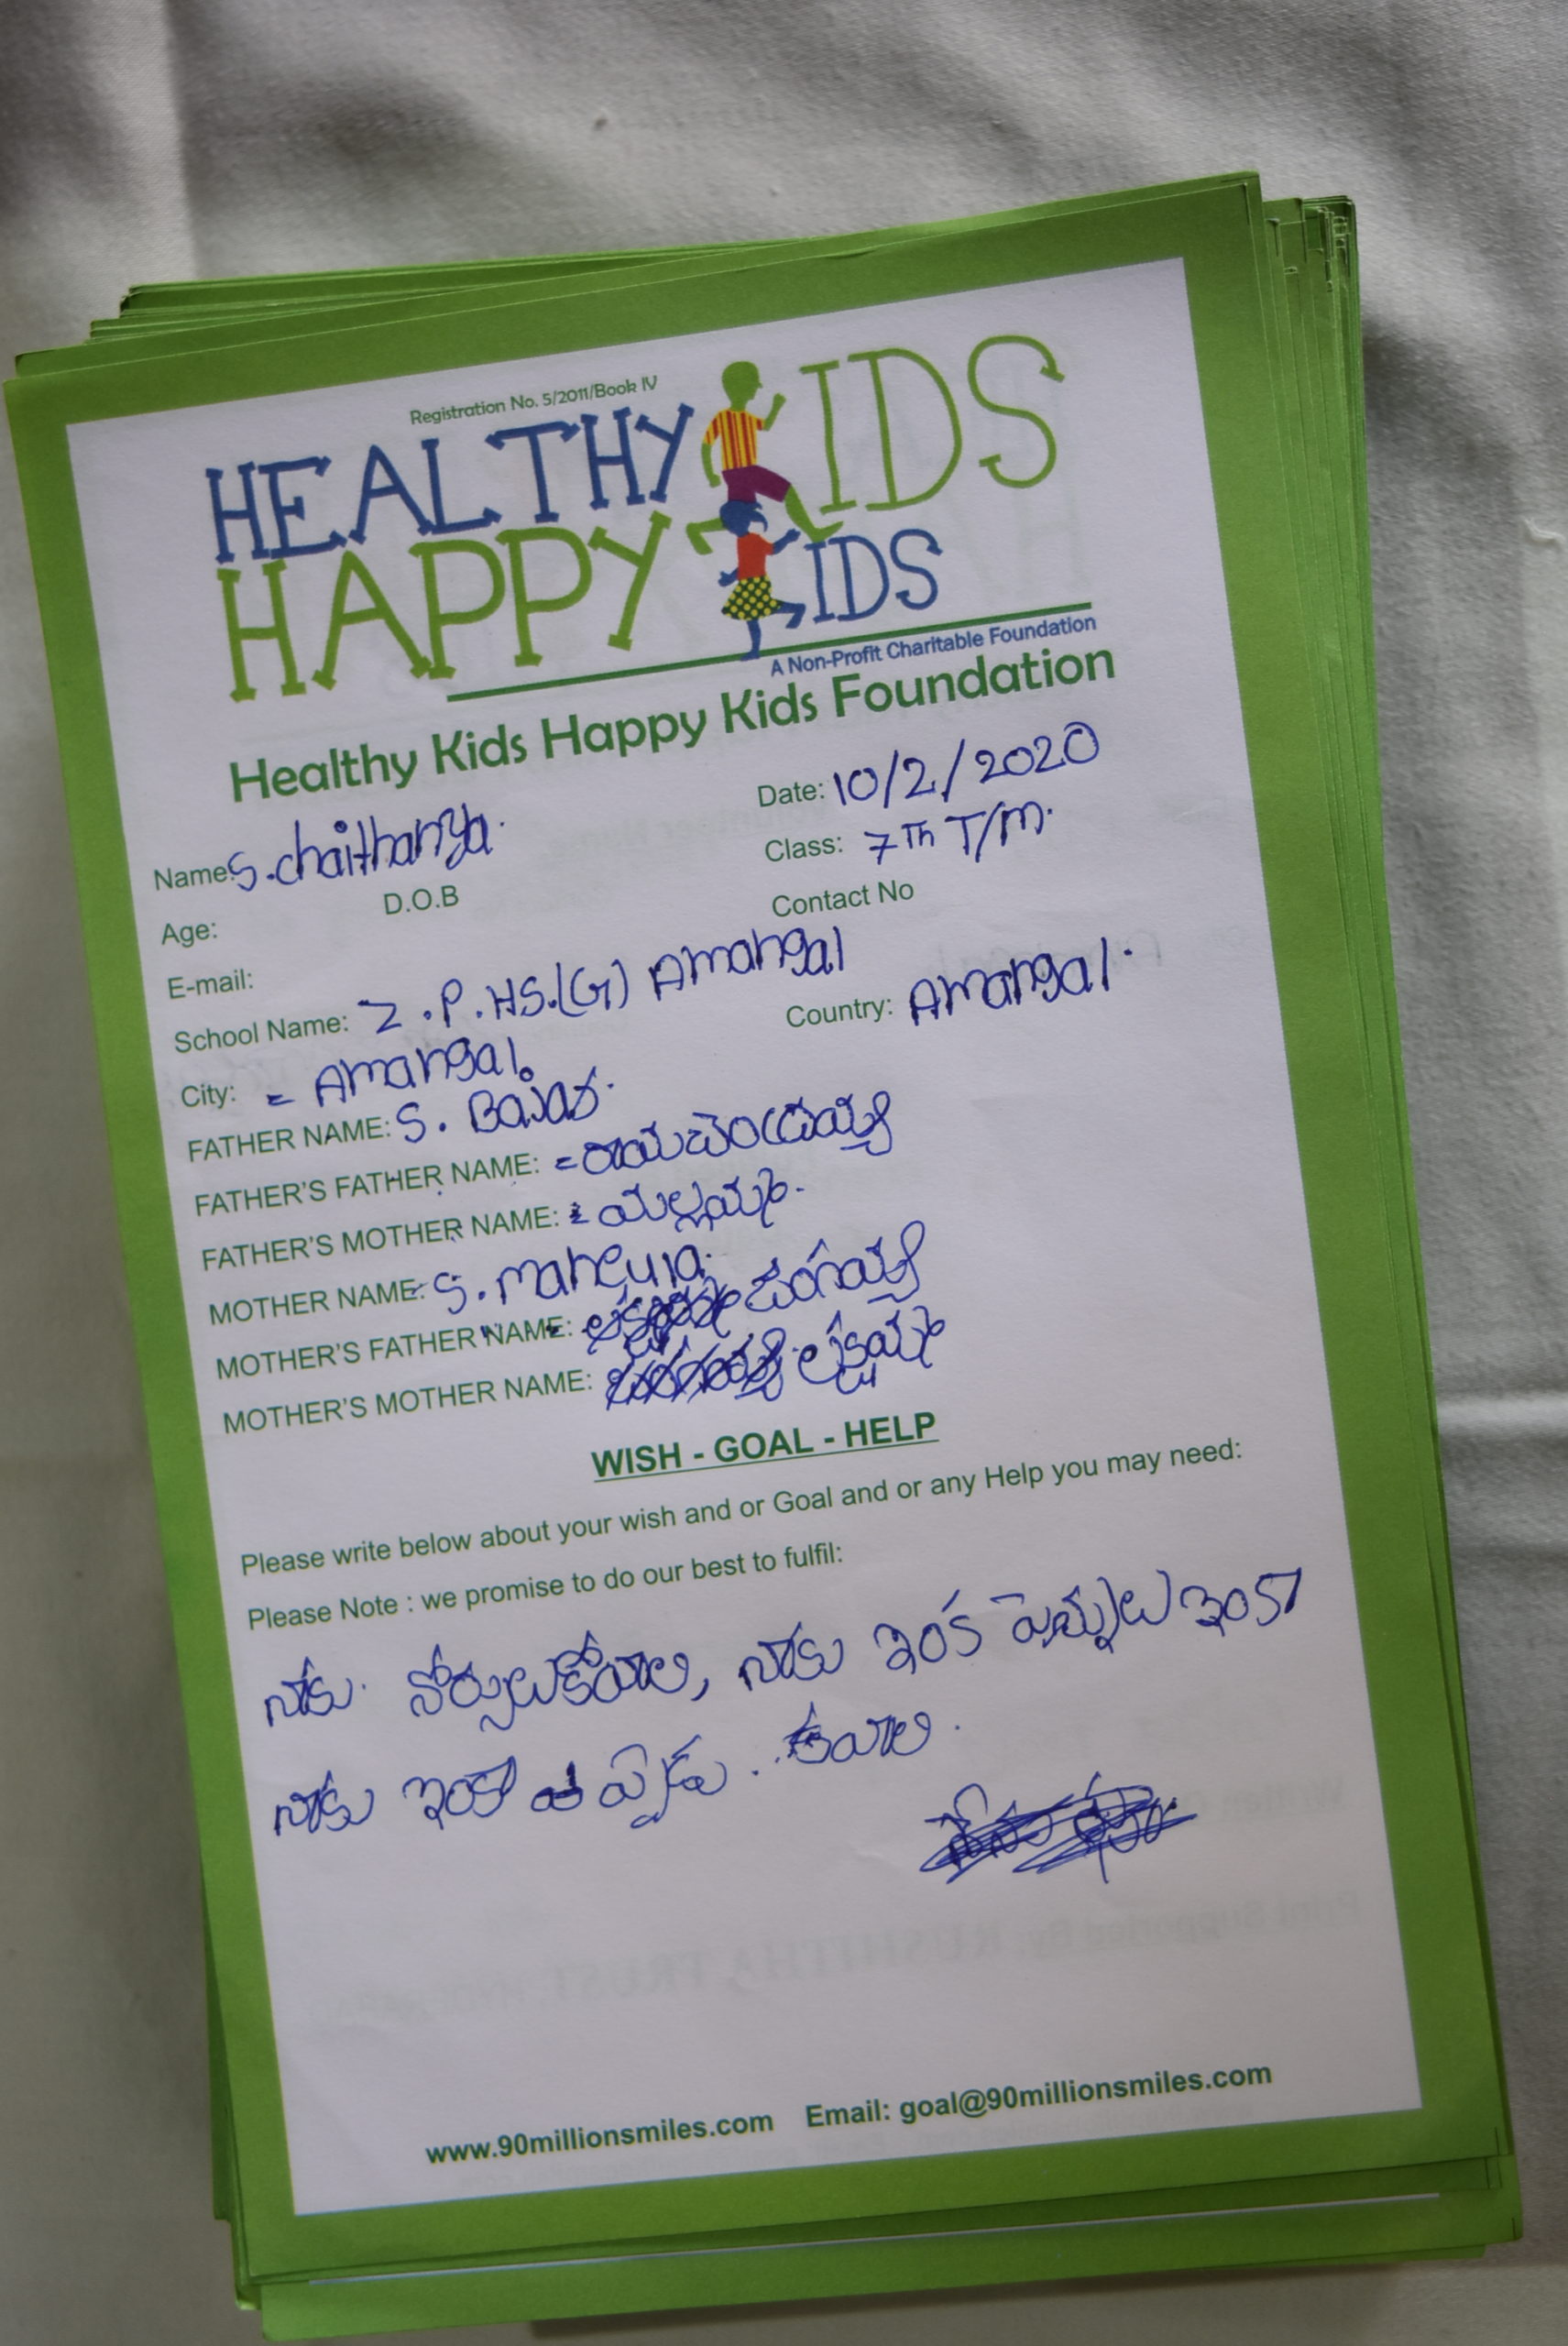 Registration No. 5/2011/Book IV
HEALTHY KIDS
HAPPY KIDS
A Non-Profit Charitable Foundation
Healthy Kids Happy Kids Foundation
Name: S.chaithanya. Date: 10/2/2020
Age: D.O.B Class: 7Th T/m.
E-mail: Contact No
School Name: Z.P.HS.(G) Amangal
City: = Amangal. Country: Amangal.
FATHER NAME: S.
FATHER'S FATHER NAME: = రామచంద్రయ్య
FATHER'S MOTHER NAME: = యల్లమ్మ.
MOTHER NAME: S.
MOTHER'S FATHER NAME: జంగయ్య
MOTHER'S MOTHER NAME: లక్ష్మమ్మ
WISH - GOAL - HELP
Please write below about your wish and or Goal and or any Help you may need:
Please Note : we promise to do our best to fulfil:
నాకు ఇంక పెన్నులు
నాకు కావాలి.
www.90millionsmiles.com Email: goal@90millionsmiles.com